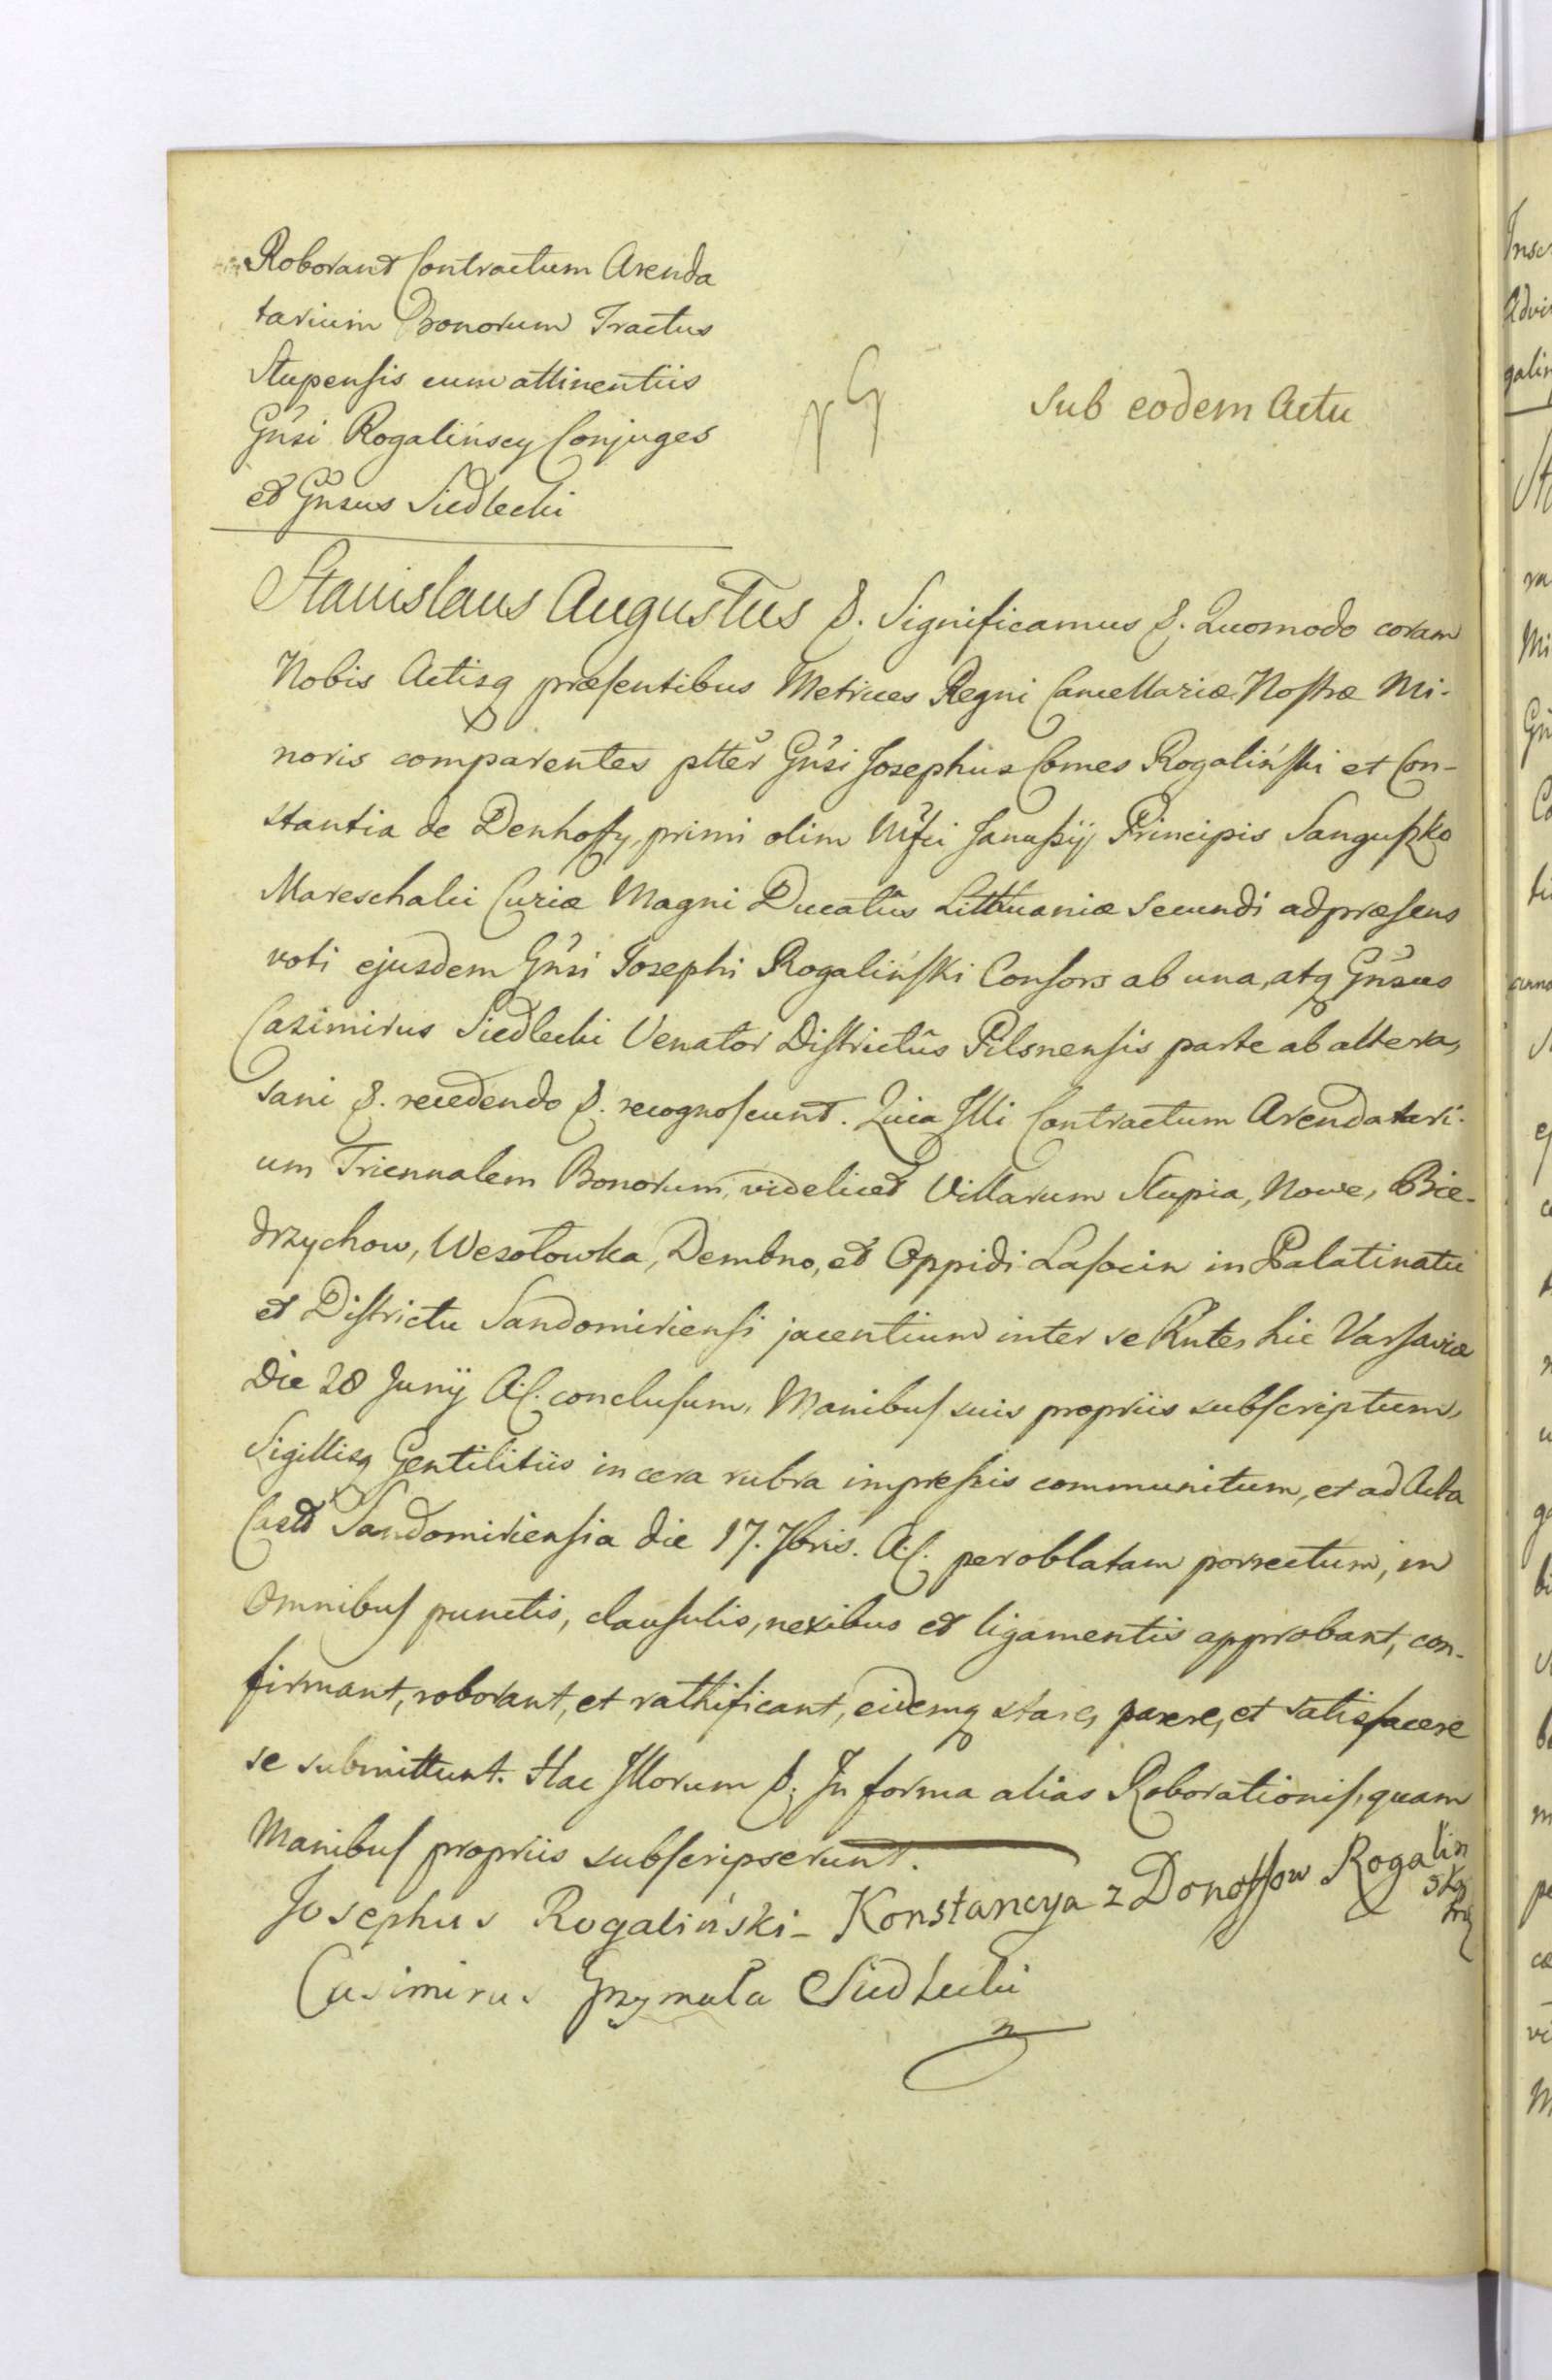 Roborant Contractum Arenda
tarium Bonorum Tractus
Stupensis cum attinentiis
Gnsi Rogalińscy Conjuges
et Gnsus Siedlecki
Sub eodem Actu
Stanislaus Augustus &. Significamus &. Quomodo coram
Nobis Actisq præsentibus Metrices Regni Cancellariæ Nostræ Mi-
noris comparentes plter Gnsi Josephus Comes Rogaliński et Con-
stantia de Denhoffy, primi olim Mfci Janussij Principis Sanguszko
Mareschalci Curiæ Magni Ducatûs Litthuaniæ Secundi adpræsens
voti ejusdem Gnsi Josephi Rogaliński Consors ab una, atq Gnsus
Casimirus Siedlecki Venator Districtûs Pilsnensis parte ab altera,
sani &. recedendo &. recognoscunt. Quia Illi Contractum Arendatari-
um Triennalem Bonorum, videlicet Villarum Stupia, Nowe, Bie-
drzychow, Wesołowka, Dembno, et Oppidi Lasocin in Palatinatu
et Districtu Sandomiriensi jacentium inter se Rntes hic Varsaviæ
Die 28 Junij A.C. conclusum, Manibus suis propriis subscriptum,
Sigillisq Gentilitiis in cera rubra impressis communitum, et ad Acta
Castr Sandomiriensia die 17. 7bris. A.C. per oblatam porrectum, in
Omnibus punctis, clausulis, nexibus et ligamentis approbant, con-
firmant, roborant, et rathificant, eidemq stare, parere, et satisfacere
se submittunt. Hac Illorum &. In forma alias Roborationis, quam
Manibus propriis subscripserunt.
Josephus Rogaliński - Konstancya z Donoffow Rogalin
ska
Casimirus Grzymała Siedlecki